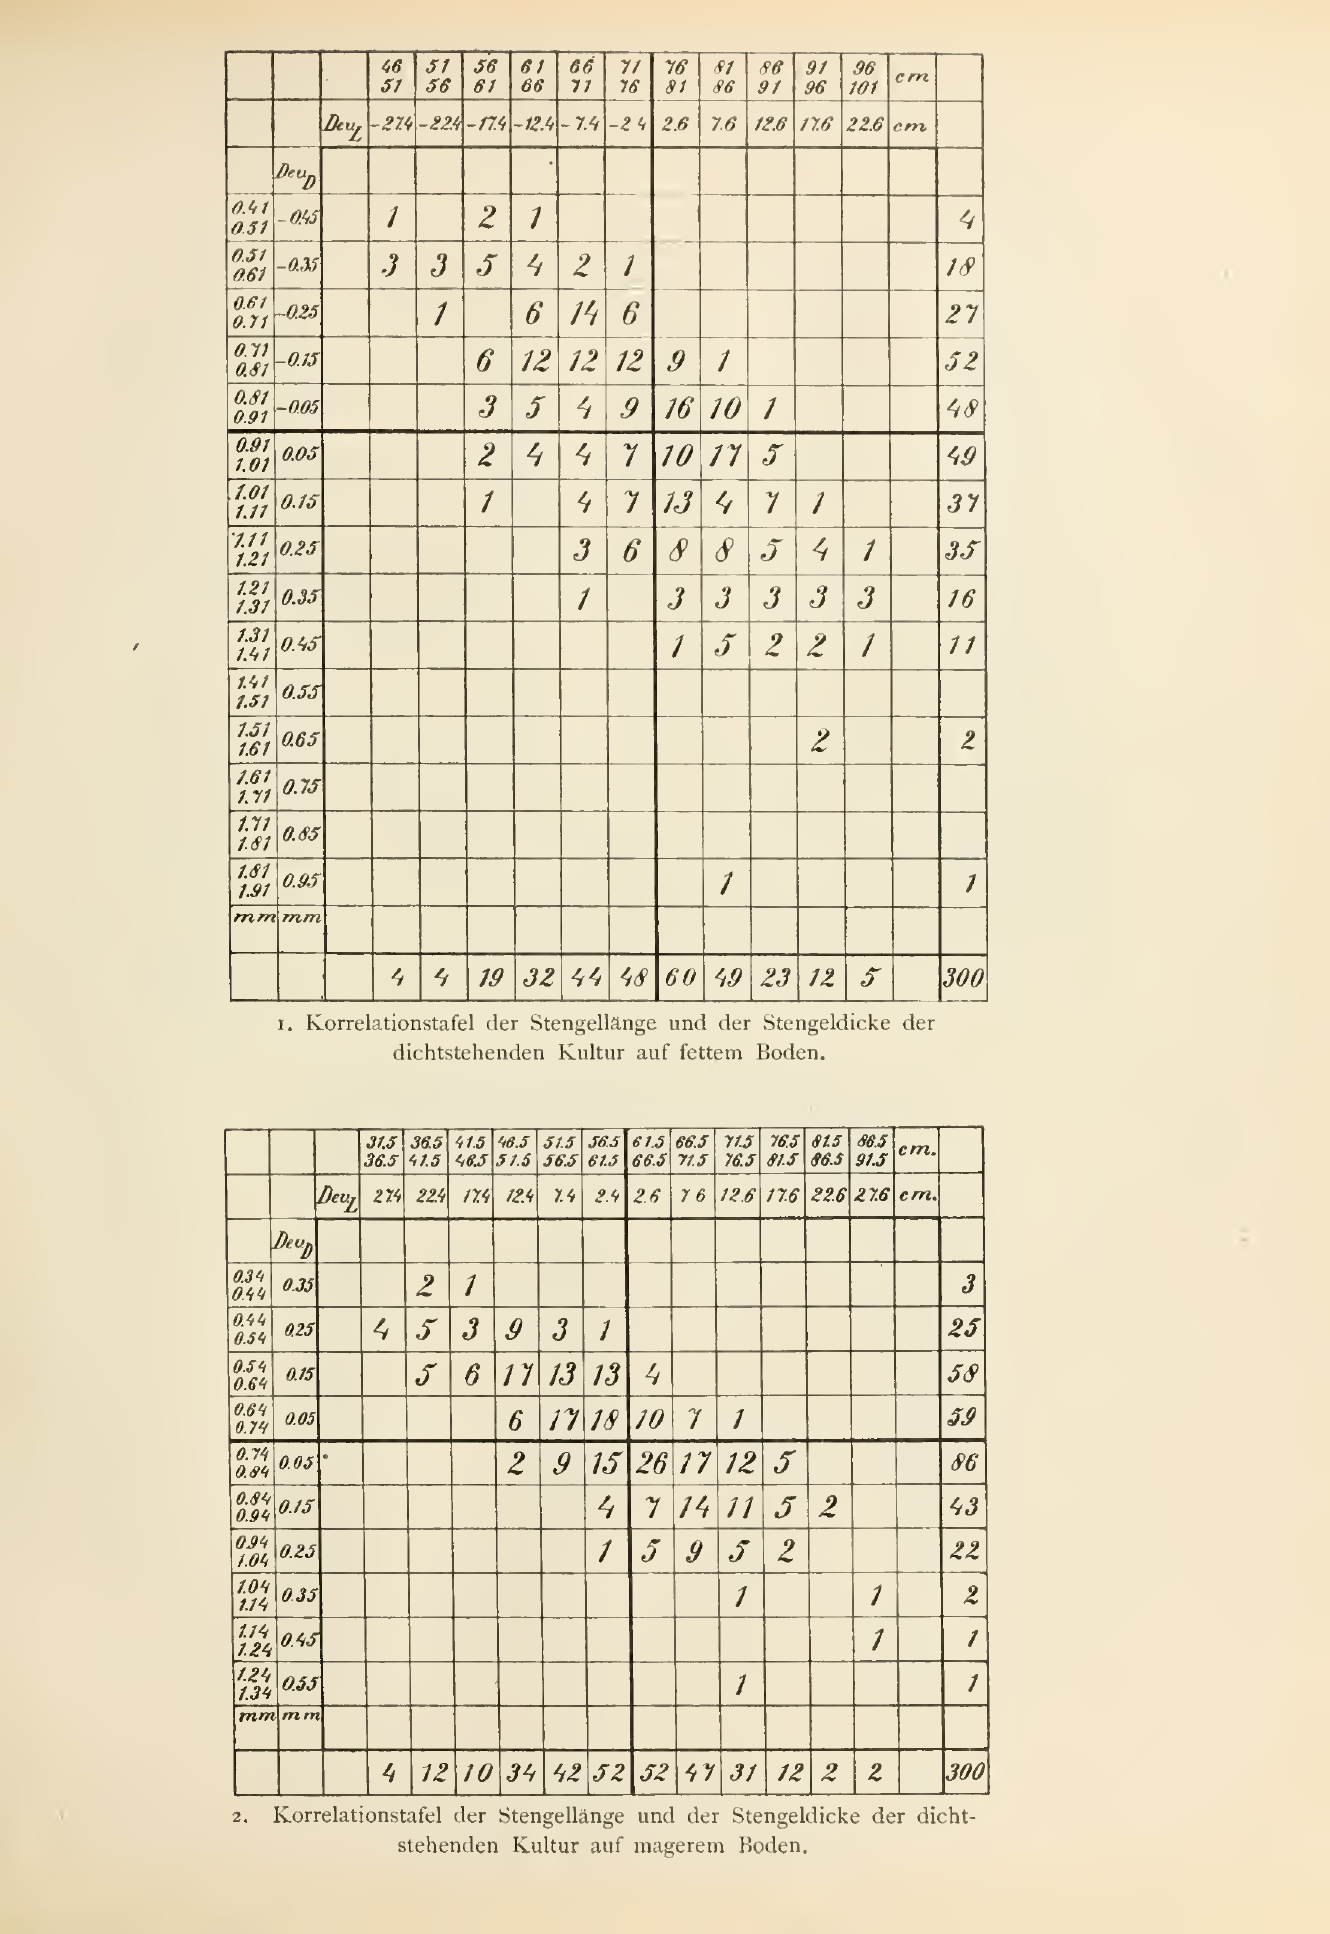 46 51 56 61 66 71 76 81 86 91 96 cm
51 56 61 66 71 76 81 86 91 96 101
Dev_L -27.4 -22.4 -17.4 -12.4 -7.4 -2 4 2.6 7.6 12.6 17.6 22.6 cm
Dev_D
0.41 0.51 -0.45 1 2 1 4
0.51 0.61 -0.35 3 3 5 4 2 1 18
0.61 0.71 -0.25 1 6 14 6 27
0.71 0.81 -0.15 6 12 12 12 9 1 52
0.81 0.91 -0.05 3 5 4 9 16 10 1 48
0.91 1.01 0.05 2 4 4 7 10 17 5 49
1.01 1.11 0.15 1 4 7 13 4 7 1 37
1.11 1.21 0.25 3 6 8 8 5 4 1 35
1.21 1.31 0.35 1 3 3 3 3 3 16
1.31 1.41 0.45 1 5 2 2 1 11
1.41 1.51 0.55
1.51 1.61 0.65 2 2
1.61 1.71 0.75
1.71 1.81 0.85
1.81 1.91 0.95 1 1
mm mm
4 4 19 32 44 48 60 49 23 12 5 300
1. Korrelationstafel der Stengellänge und der Stengeldicke der
dichtstehenden Kultur auf fettem Boden.
31.5 36.5 41.5 46.5 51.5 56.5 61.5 66.5 71.5 76.5 81.5 86.5 cm.
36.5 41.5 46.5 51.5 56.5 61.5 66.5 71.5 76.5 81.5 86.5 91.5
Dev_L 27.4 22.4 17.4 12.4 7.4 2.4 2.6 7 6 12.6 17.6 22.6 27.6 cm.
Dev_D
0.34 0.44 0.35 2 1 3
0.44 0.54 0.25 4 5 3 9 3 1 25
0.54 0.64 0.15 5 6 17 13 13 4 58
0.64 0.74 0.05 6 17 18 10 7 1 59
0.74 0.84 0.05 2 9 15 26 17 12 5 86
0.84 0.94 0.15 4 7 14 11 5 2 43
0.94 1.04 0.25 1 5 9 5 2 22
1.04 1.14 0.35 1 1 2
1.14 1.24 0.45 1 1
1.24 1.34 0.55 1 1
mm mm
4 12 10 34 42 52 52 47 31 12 2 2 300
2. Korrelationstafel der Stengellänge und der Stengeldicke der dicht-
stehenden Kultur auf magerem Boden.